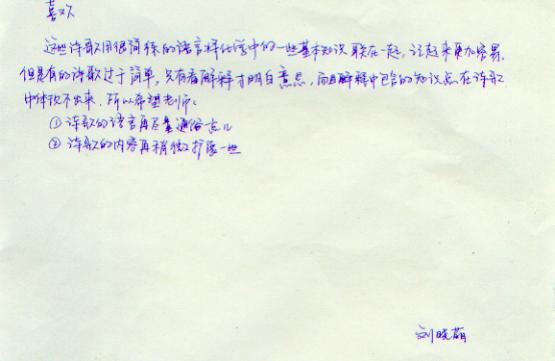 喜欢
这些诗歌用很简练的语言将化学中的一些基本知识联在一起,记起来更加容易.
但是有的诗歌过于简单,只有看解释才明白意思,而且解释中包含的知识点在诗歌
中体现不出来,所以希望老师:
① 诗歌的语言再尽量通俗一些
② 诗歌的内容再稍微扩展一些
刘晓萌